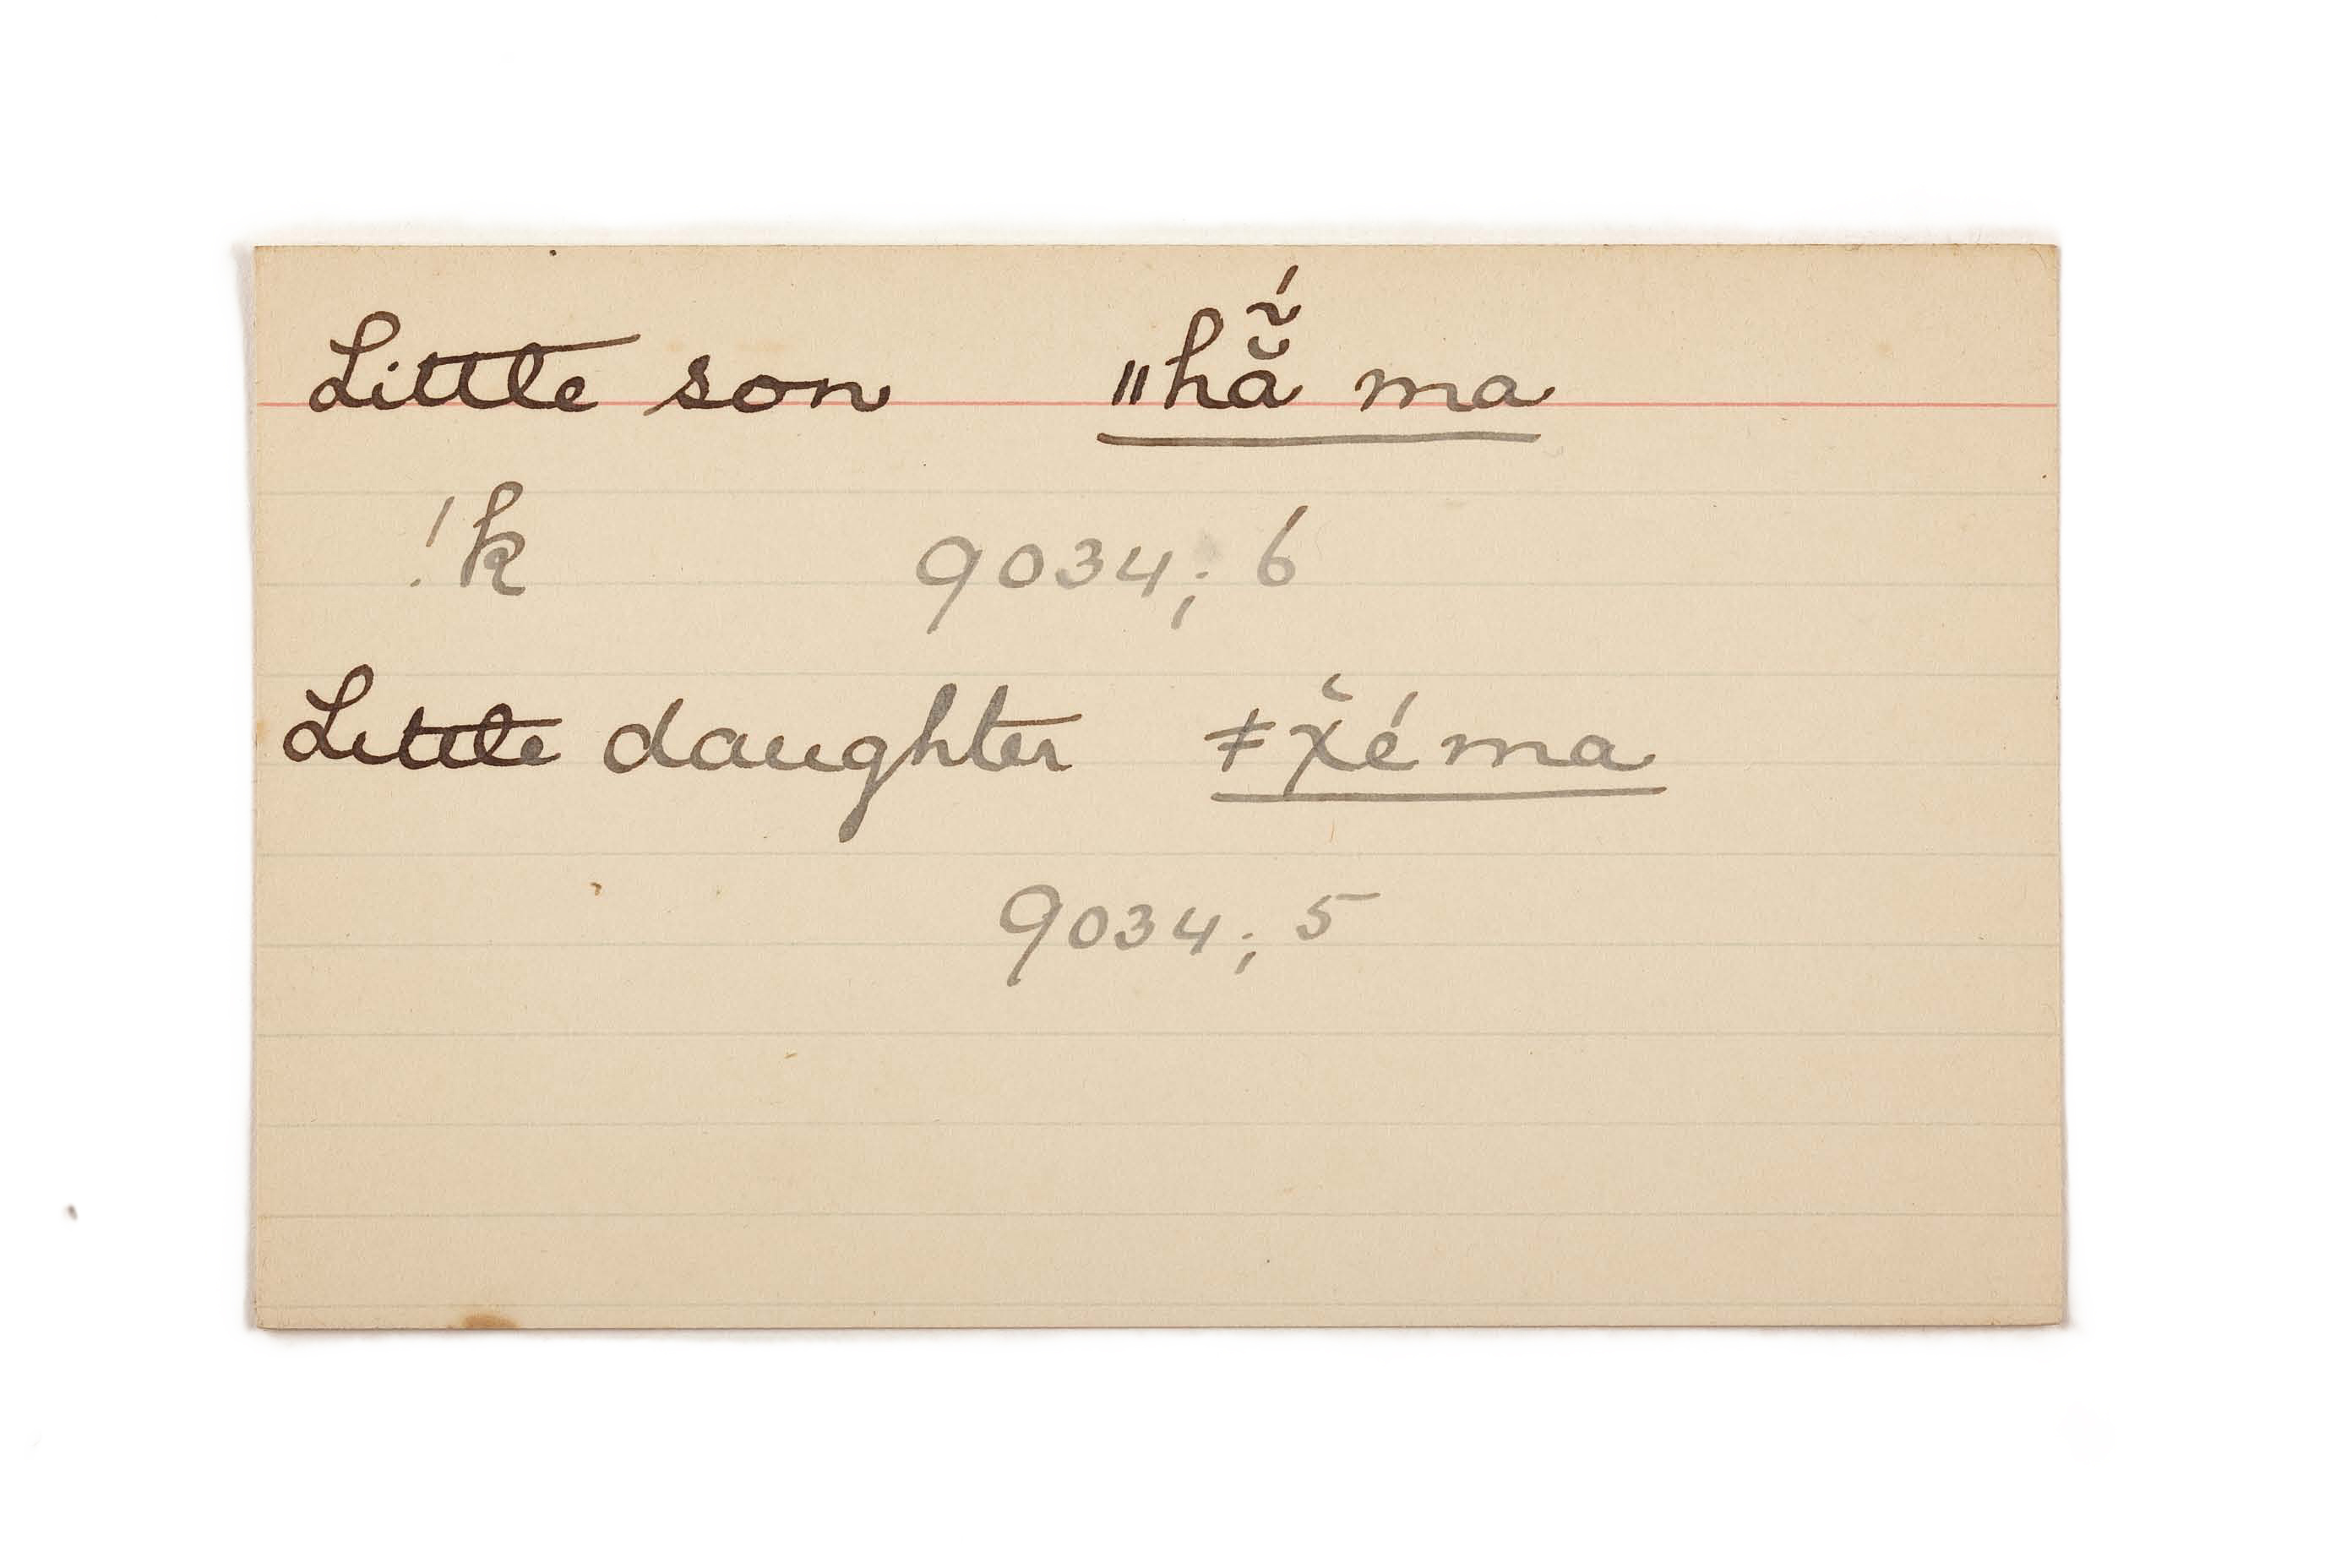 Little son ǁhã̆́ ma
!k 9034; 6
Little daughter ǂχ̆é ma
9034; 5